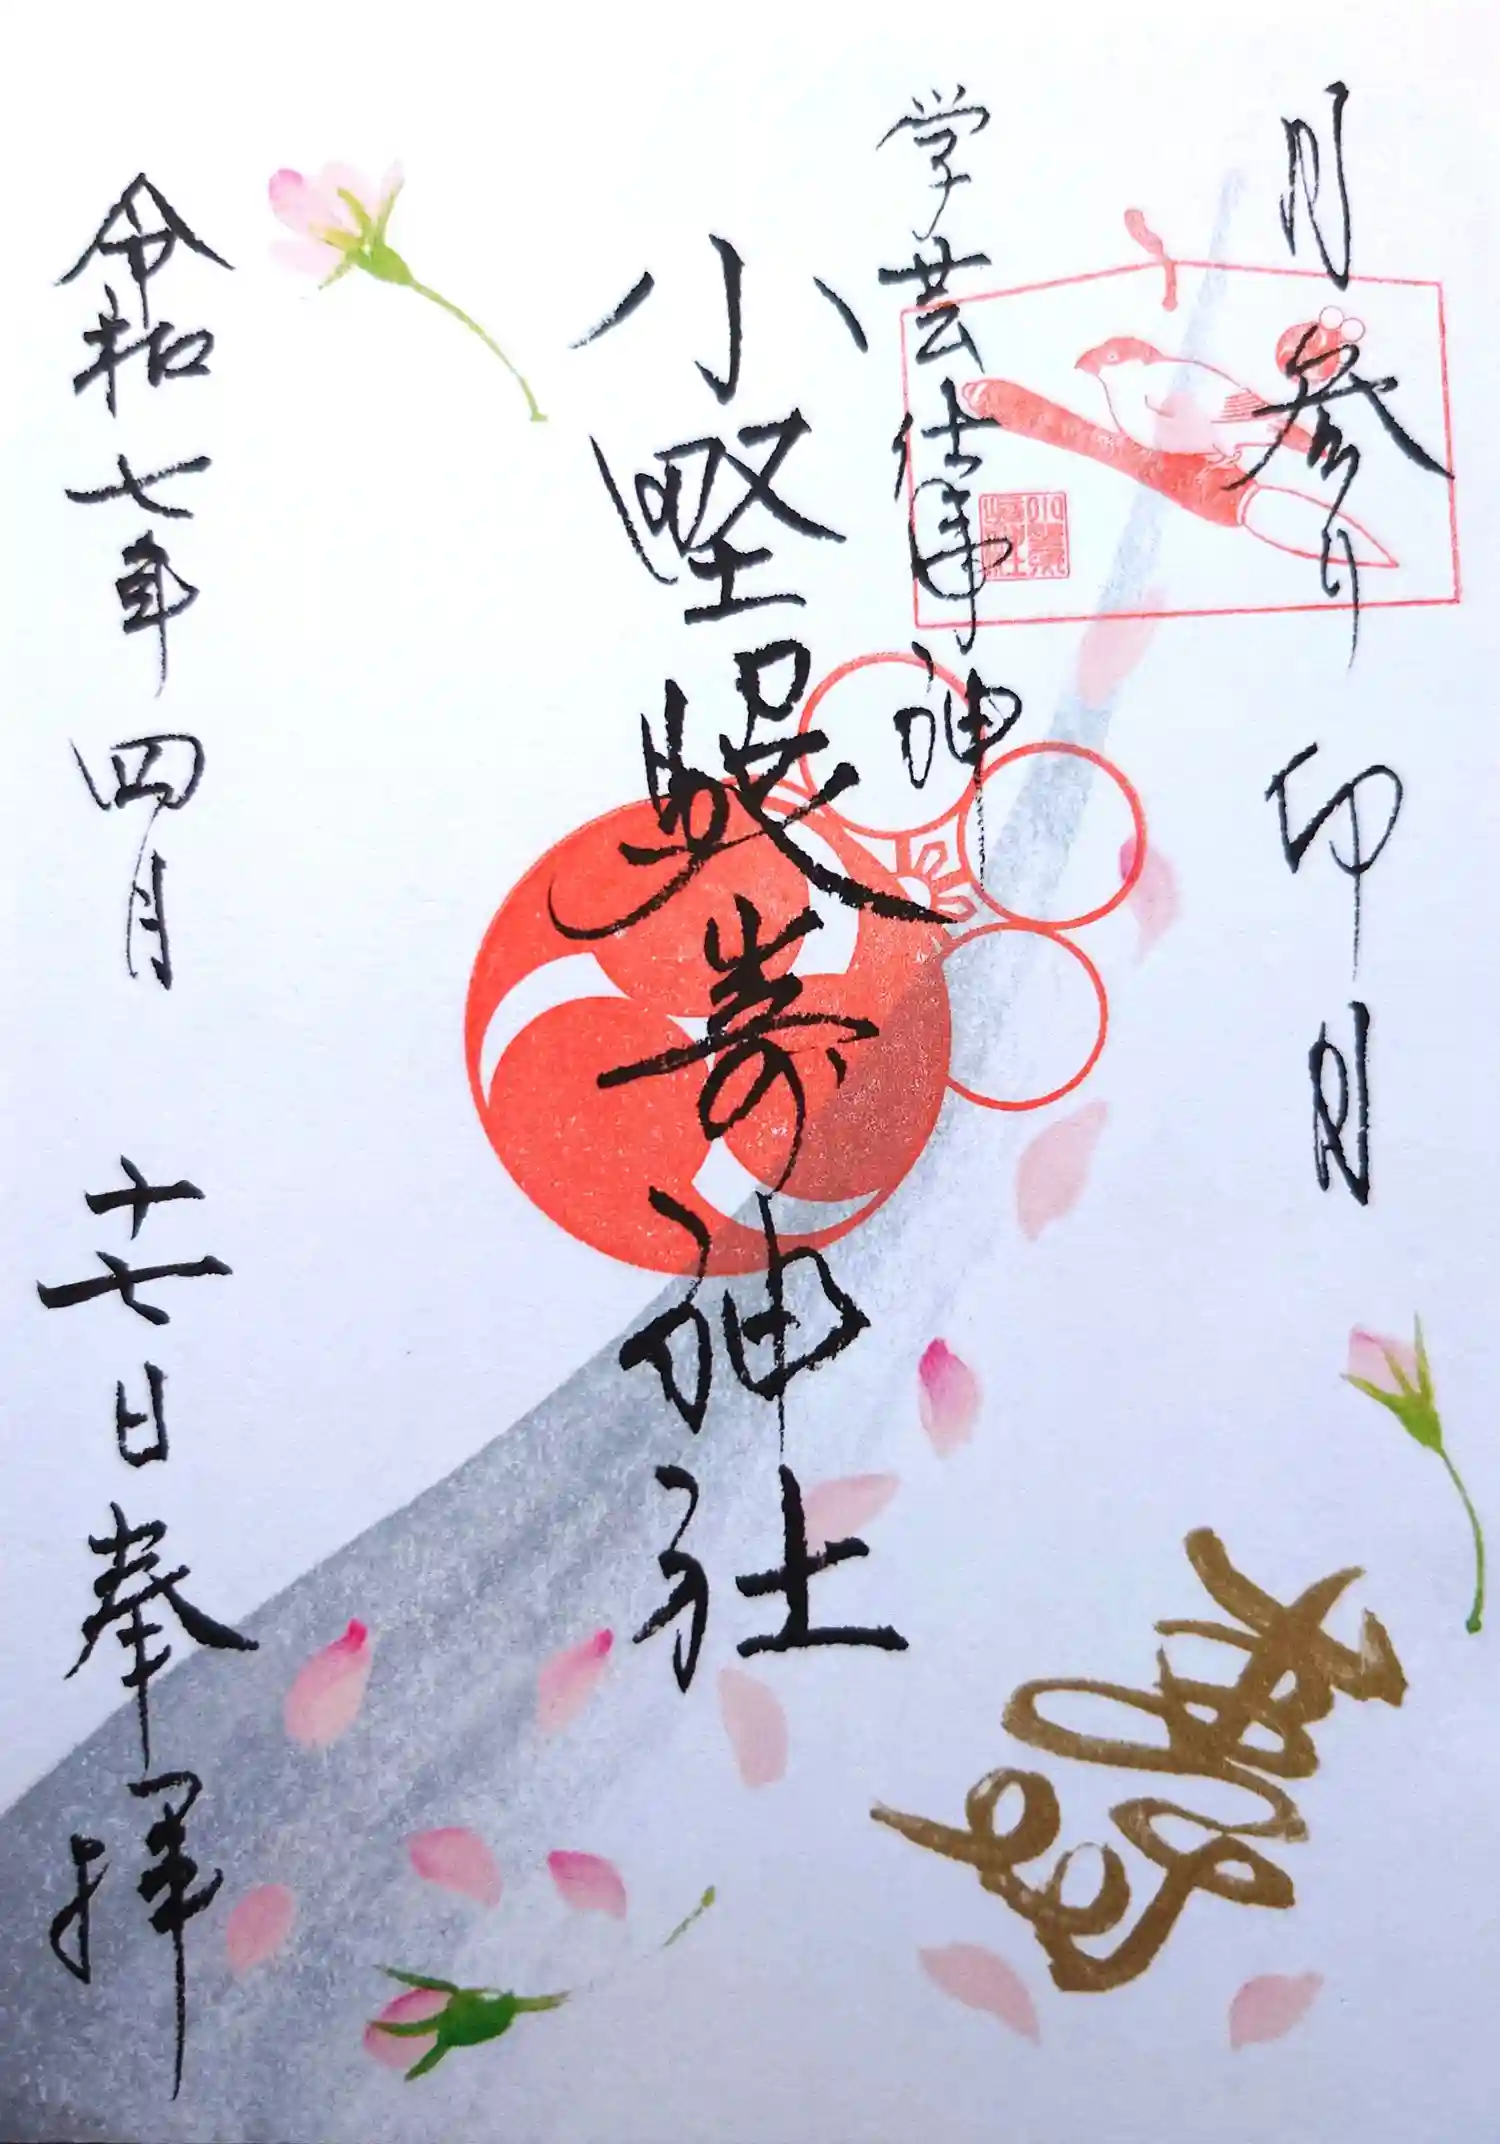 月参り 卯月
学芸仕事神
小野照崎神社
令和七年四月十七日奉拝